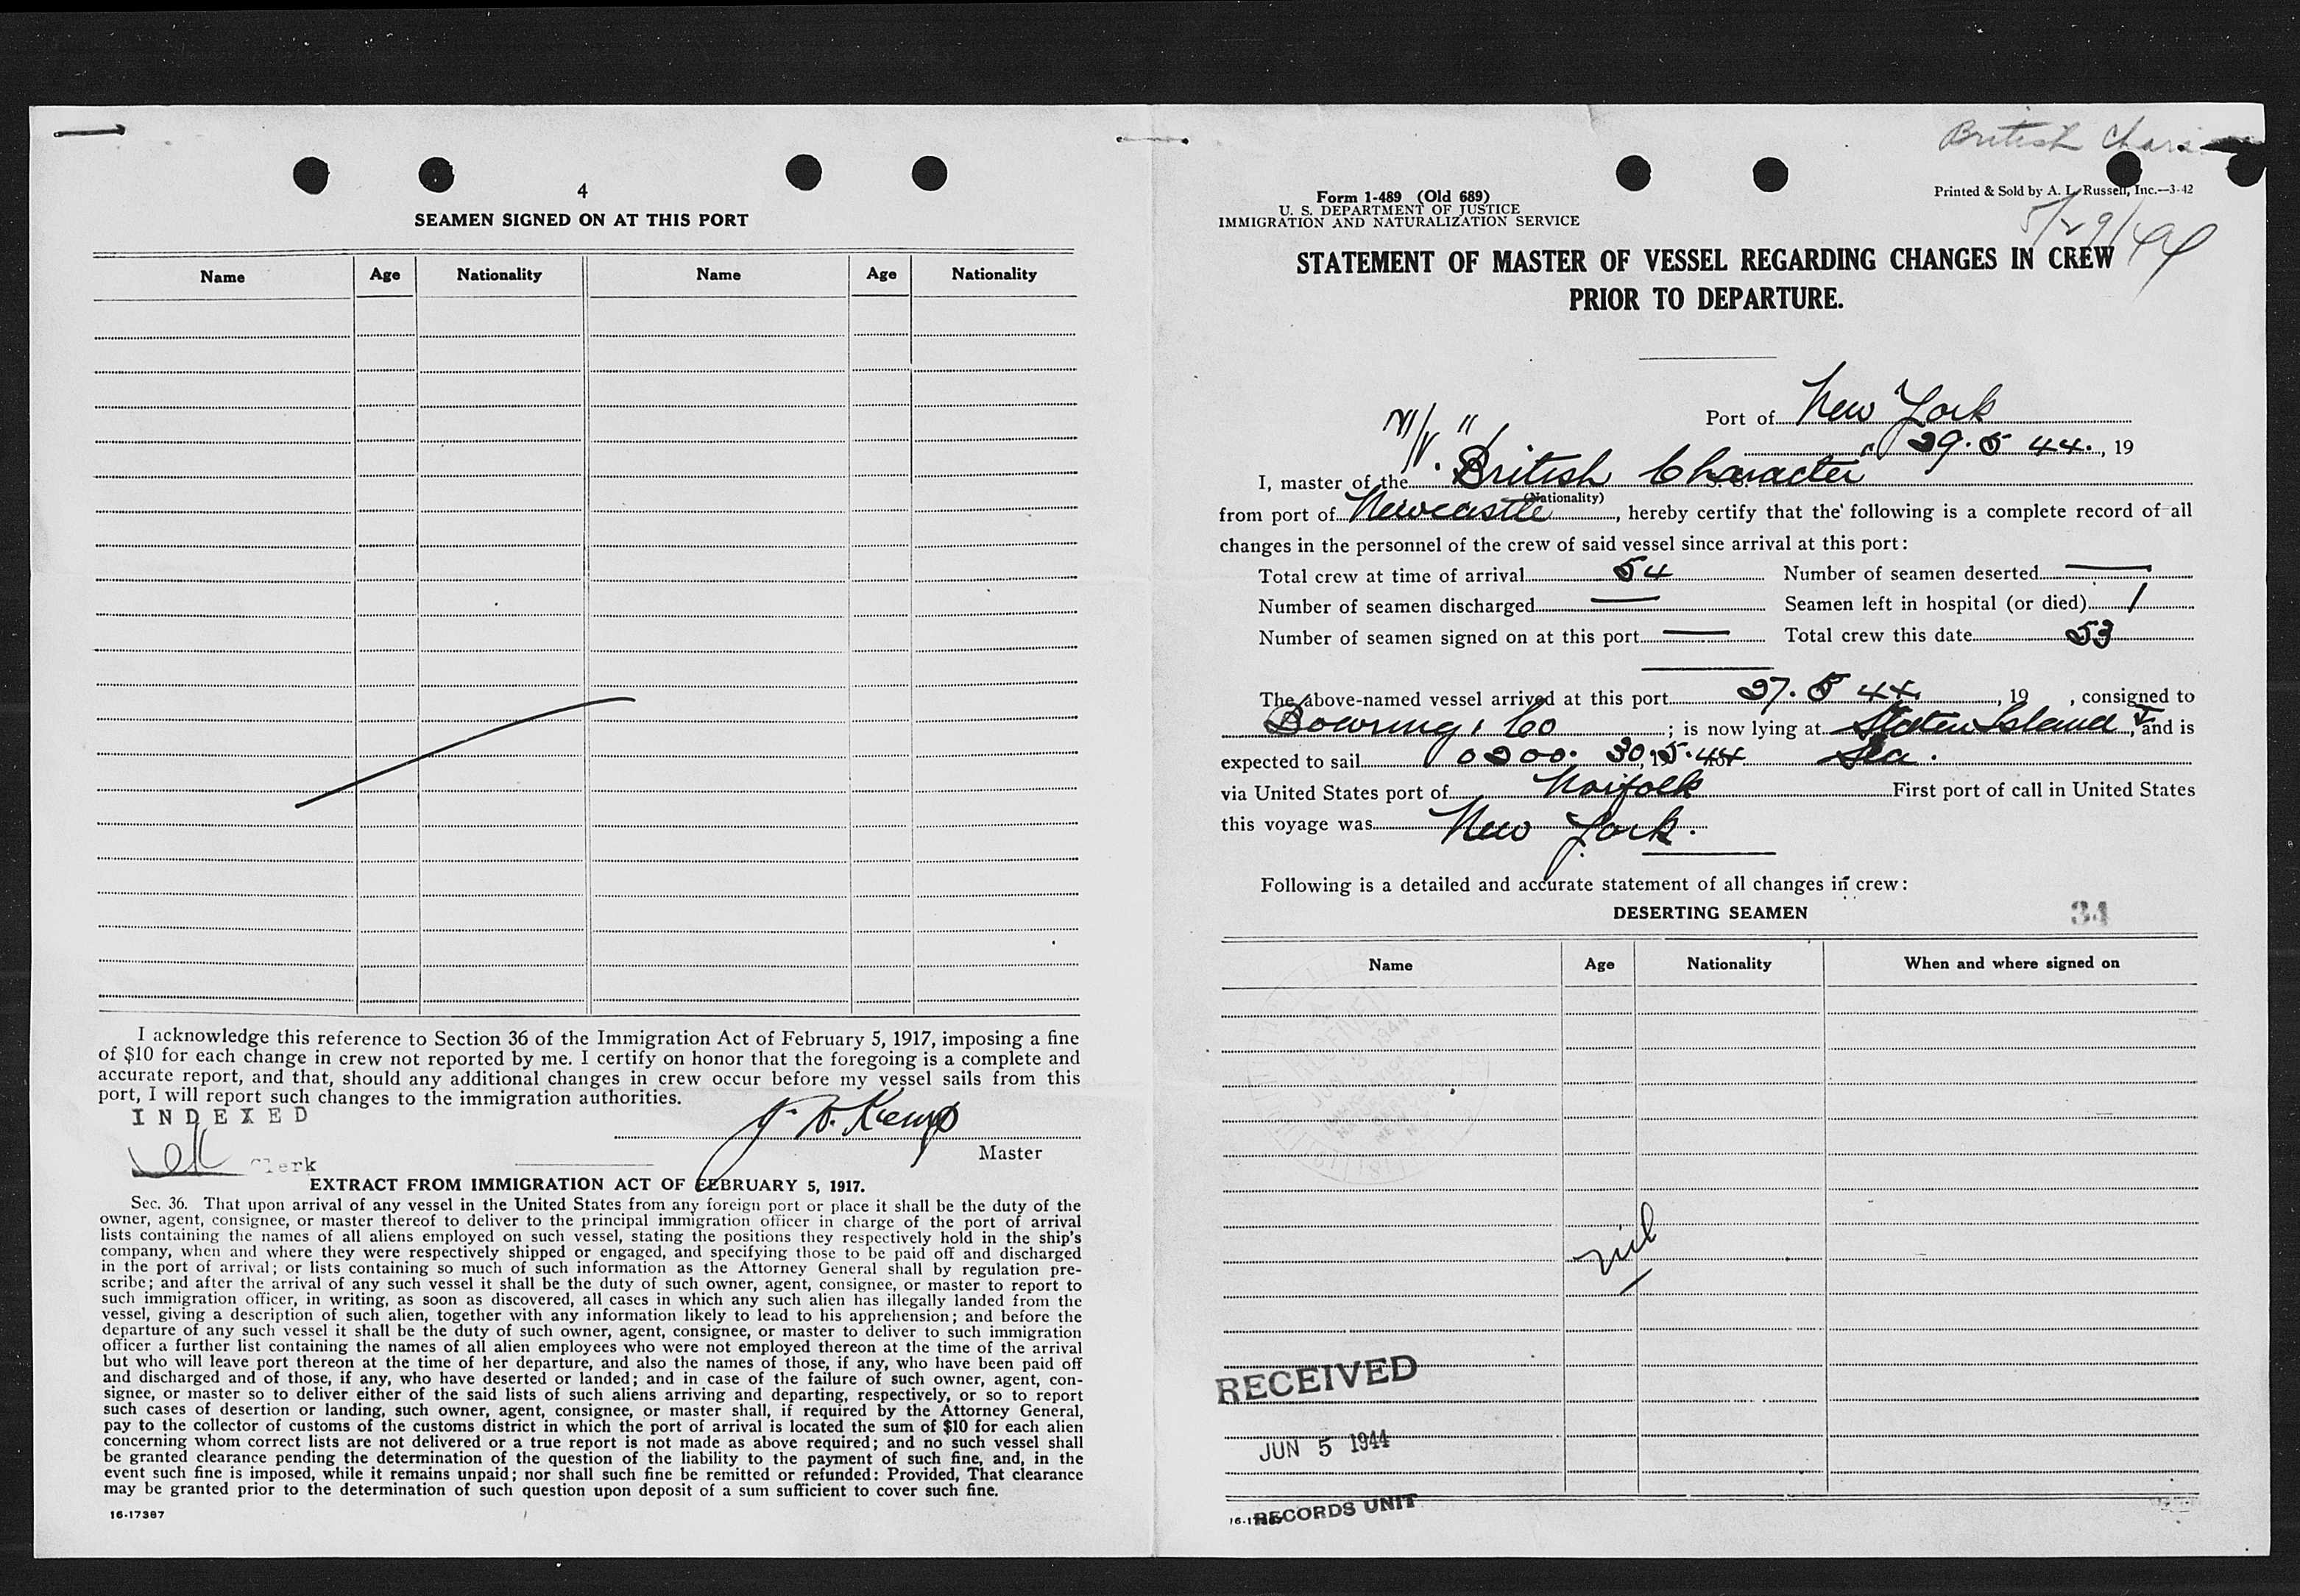 4
SEAMEN SIGNED ON AT THIS PORT
Name Age Nationality Name Age Nationality
I acknowledge this reference to Section 36 of the Immigration Act of February 5, 1917, imposing a fine
of $10 for each change in crew not reported by me. I certify on honor that the foregoing is a complete and
accurate report, and that, should any additional changes in crew occur before my vessel sails from this
port, I will report such changes to the immigration authorities.
INDEXED
Clerk
Kemp
Master
EXTRACT FROM IMMIGRATION ACT OF FEBRUARY 5, 1917.
Sec. 36. That upon arrival of any vessel in the United States from any foreign port or place it shall be the duty of the
owner, agent, consignee, or master thereof to deliver to the principal immigration officer in charge of the port of arrival
lists containing the names of all aliens employed on such vessel, stating the positions they respectively hold in the ship's
company, when and where they were respectively shipped or engaged, and specifying those to be paid off and discharged
in the port of arrival; or lists containing so much of such information as the Attorney General shall by regulation pre-
scribe; and after the arrival of any such vessel it shall be the duty of such owner, agent, consignee, or master to report to
such immigration officer, in writing, as soon as discovered, all cases in which any such alien has illegally landed from the
vessel, giving a description of such alien, together with any information likely to lead to his apprehension; and before the
departure of any such vessel it shall be the duty of such owner, agent, consignee, or master to deliver to such immigration
officer a further list containing the names of all alien employees who were not employed thereon at the time of the arrival
but who will leave port thereon at the time of her departure, and also the names of those, if any, who have been paid off
and discharged and of those, if any, who have deserted or landed; and in case of the failure of such owner, agent, con-
signee, or master so to deliver either of the said lists of such aliens arriving and departing, respectively, or so to report
such cases of desertion or landing, such owner, agent, consignee, or master shall, if required by the Attorney General,
pay to the collector of customs of the customs district in which the port of arrival is located the sum of $10 for each alien
concerning whom correct lists are not delivered or a true report is not made as above required; and no such vessel shall
be granted clearance pending the determination of the question of the liability to the payment of such fine, and, in the
event such fine is imposed, while it remains unpaid; nor shall such fine be remitted or refunded: Provided, That clearance
may be granted prior to the determination of such question upon deposit of a sum sufficient to cover such fine.
16-17387
British
Form 1-489 (Old 689)
U. S. DEPARTMENT OF JUSTICE
IMMIGRATION AND NATURALIZATION SERVICE
Printed & Sold by A. L. Russell, Inc.—3-42
5/29/44
STATEMENT OF MASTER OF VESSEL REGARDING CHANGES IN CREW
PRIOR TO DEPARTURE.
Port of New York
29.5 44., 19
I, master of the M/V. "British Character"
(Nationality)
from port of Newcastle, hereby certify that the following is a complete record of all
changes in the personnel of the crew of said vessel since arrival at this port:
Total crew at time of arrival 54 Number of seamen deserted —
Number of seamen discharged — Seamen left in hospital (or died) 1
Number of seamen signed on at this port — Total crew this date 53
The above-named vessel arrived at this port 27.5 44., 19 , consigned to
Bowring & Co ; is now lying at Staten Island, and is
expected to sail 0200. 30.5.44 Sea.
via United States port of Norfolk First port of call in United States
this voyage was New York.
Following is a detailed and accurate statement of all changes in crew:
DESERTING SEAMEN
34
Name Age Nationality When and where signed on
nil
RECEIVED
JUN 5 1944
RECORDS UNIT